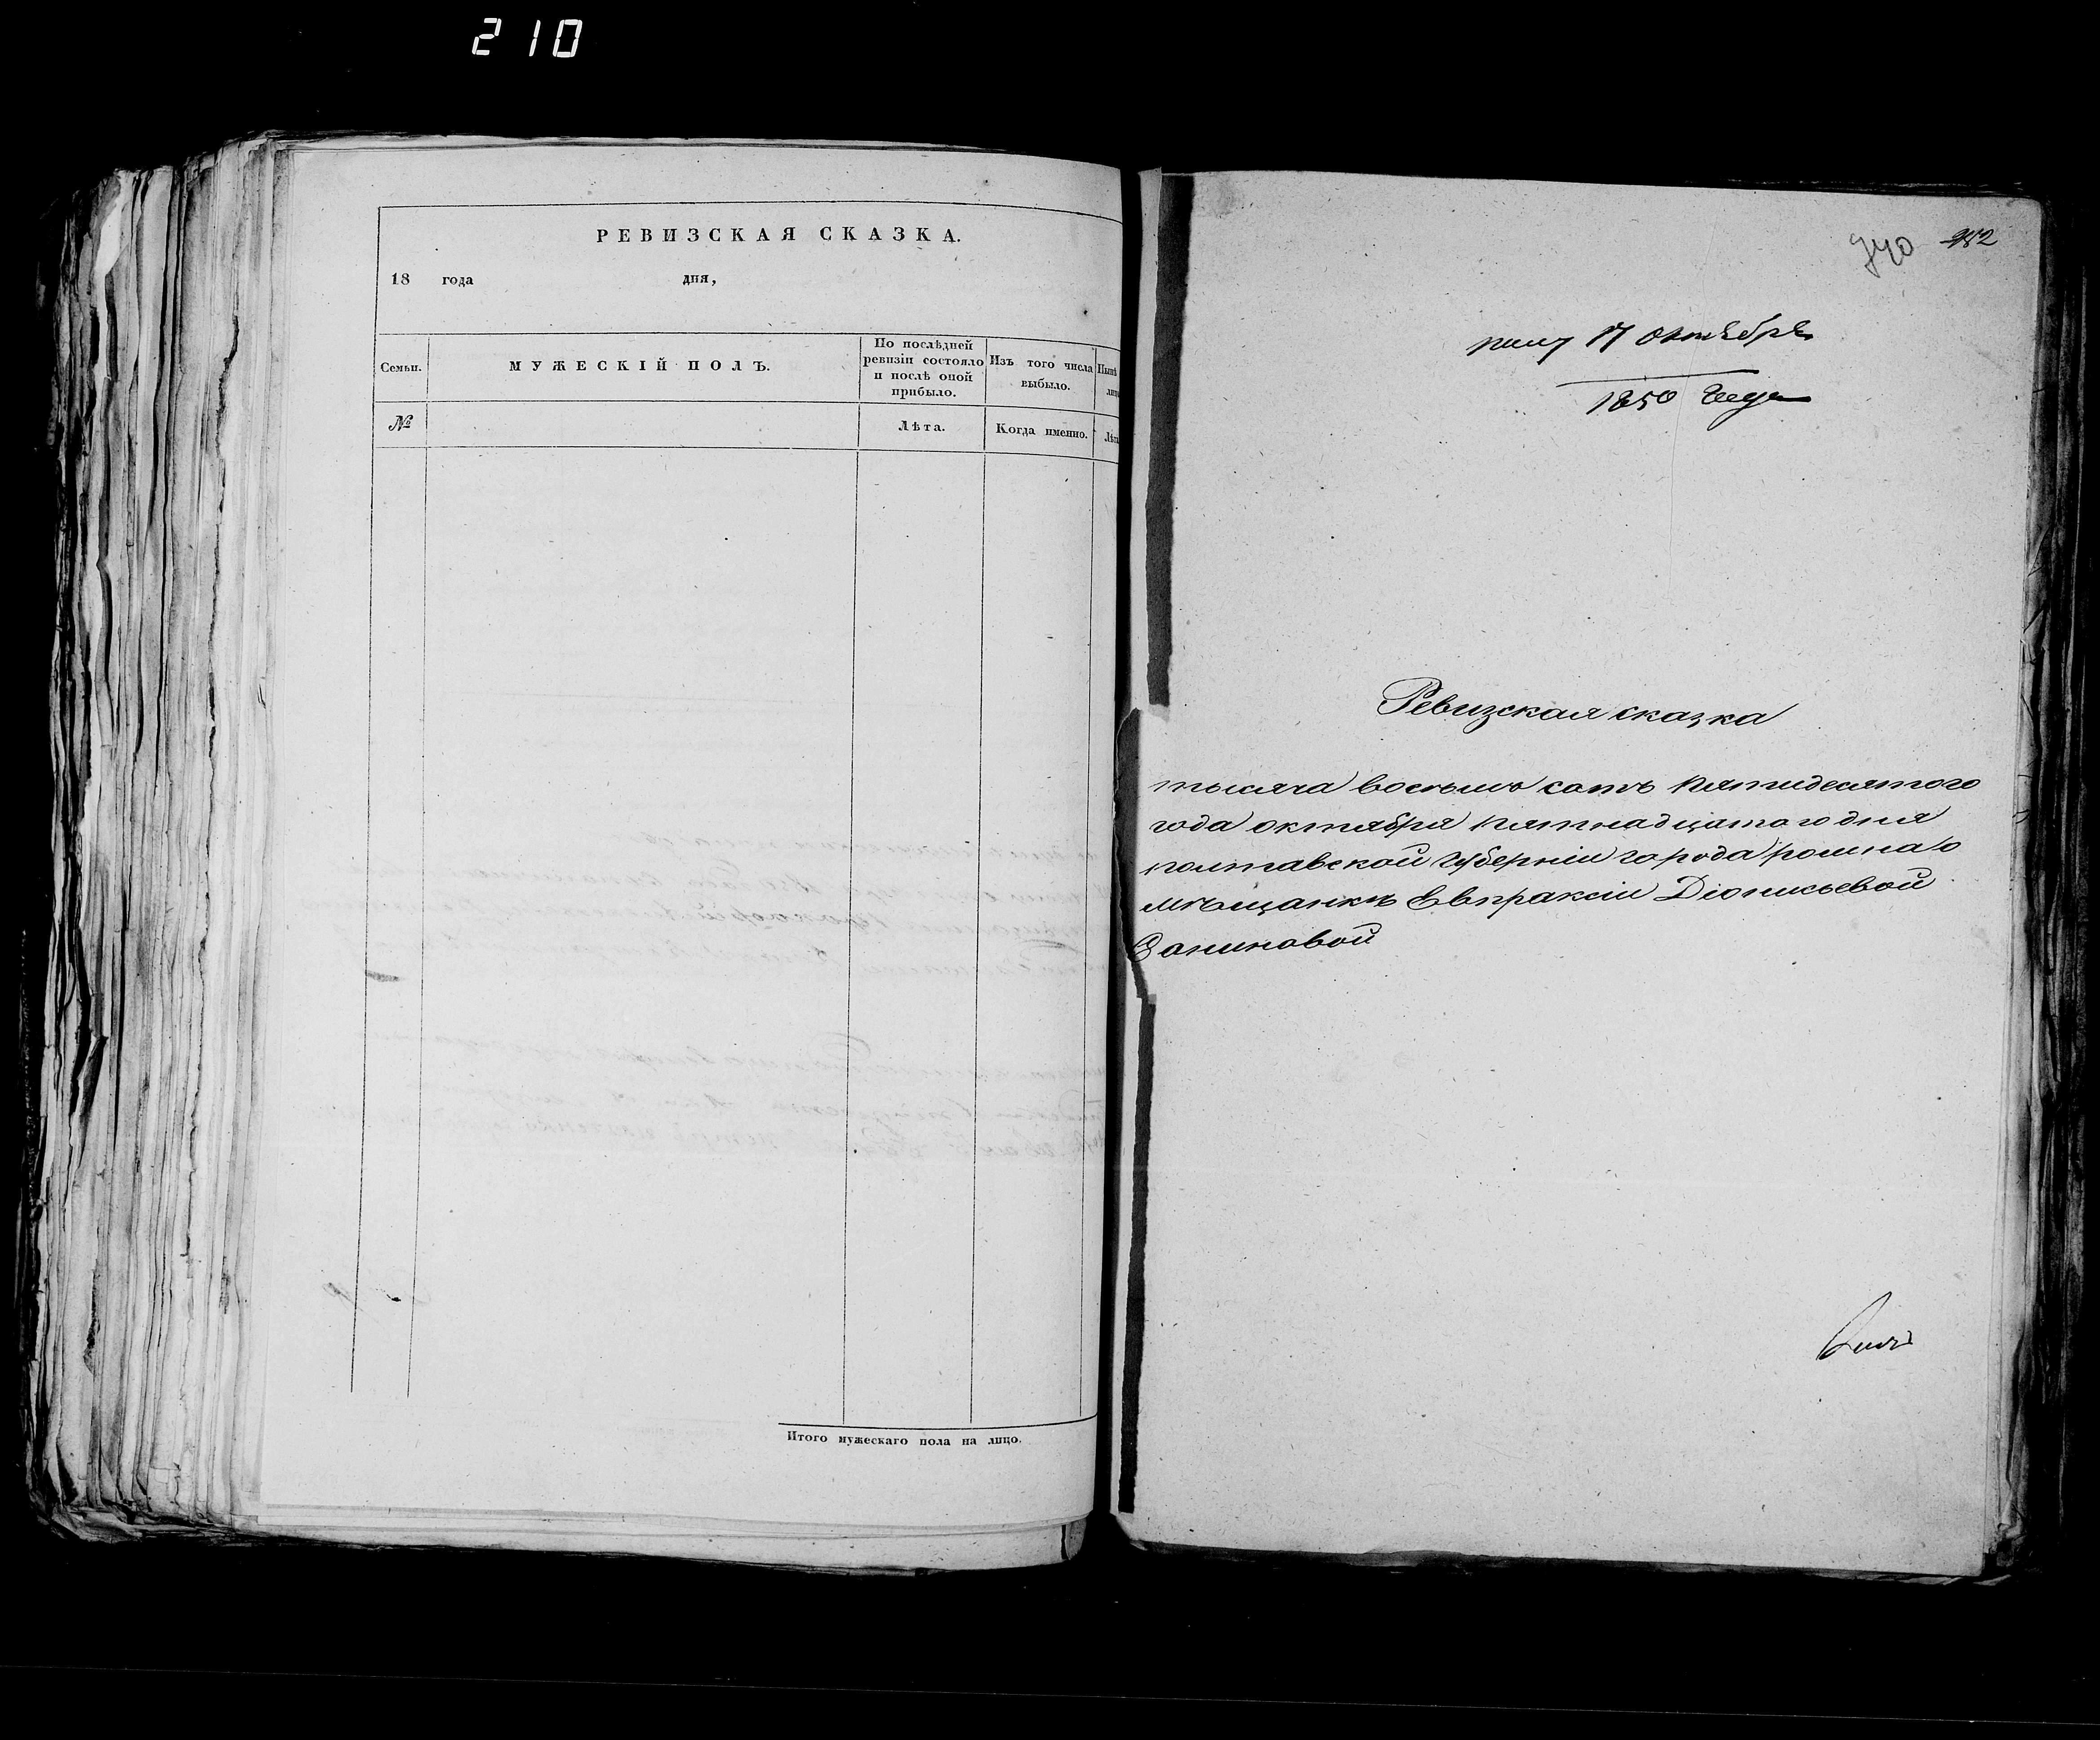 210
РЕВИЗСКАЯ СКАЗКА.
18 года дня,
Семьи.
МУЖЕСКІЙ ПОЛЪ.
По послѣдней
ревизіи состояло
и послѣ оной
прибыло.
Изъ того числа
выбыло.
№
Лѣта.
Когда именно.
Итого мужескаго пола на лицо.
740 982
17 октября
1850 года
Ревизская сказка
тысяча восемь сотъ пятидесятого
года октября пятнадцатого дня
полтавской губерніи города ромна о
мѣщанкѣ Евпраксіи Діонисьевой